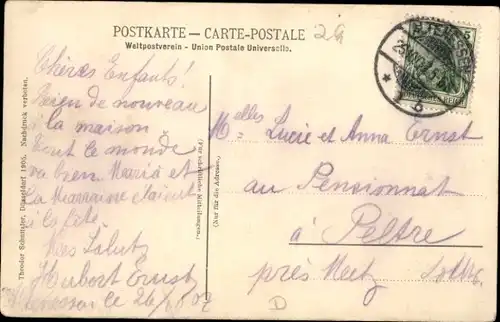 POSTKARTE – CARTE-POSTALE
Weltpostverein – Union Postale Universelle.
Chères Enfants!
Rien de nouveau
à la maison
tout le monde
va bien Maria et
la Marraine étaient
à la fête
Mes Saluts
Hubert Ernst
ce 26/8 07
Melles Lucie et Anna Ernst
au Pensionnat
à Peltre
près Metz Lothr.
Theodor Schmuhler, Düsseldorf 1905. Nachdruck verboten.
(Für schriftliche Mitteilungen.)
(Nur für die Adresse.)
D
5